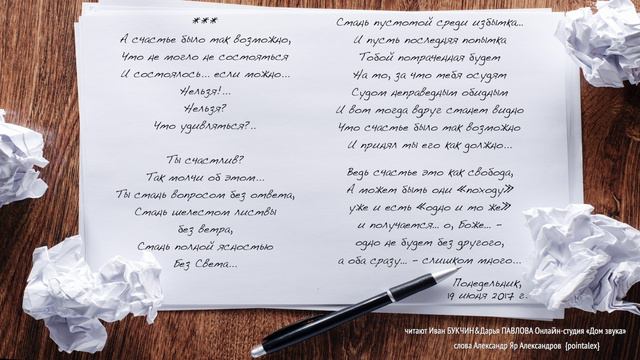 ***
А счастье было так возможно,
Что не могло не состояться
И состоялось... если можно...
Нельзя!...
Нельзя?
Что удивляться?..
Ты счастлив?
Так молчи об этом...
Ты стань вопросом без ответа,
Стань шелестом листвы
без ветра,
Стань полной ясностью
Без Света...
Стань пустотой среди избытка...
И пусть последняя попытка
Тобой потраченная будет
На то, за что тебя осудят
Судом неправедным обидным
И вот тогда вдруг станет видно
Что счастье было так возможно
И принял ты его как должно...
Ведь счастье это как свобода,
А может быть они «походу»
уже и есть «одно и то же»
и получается... о, Боже... -
одно не будет без другого,
а оба сразу... - слишком много...
Понедельник,
19 июня 2017 г.
читают Иван БУКЧИН&Дарья ПАВЛОВА Онлайн-студия «Дом звука»
слова Александр Яр Александров {pointalex}